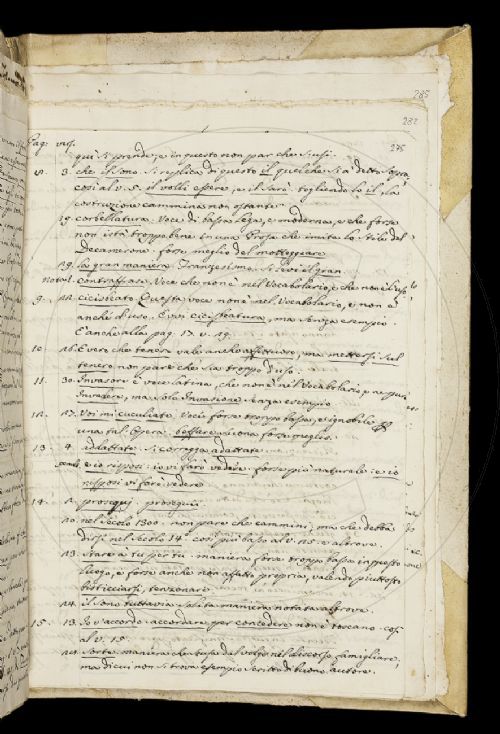 285
282
275
Pag: vers.
qui si prende, e in questo non par che si usi.
3. che il sono. Si replica di questo il quel che si è detto sopra,
così al v. 5. il volli essere, e il sarò. togliendo lo il, la
costruzione cammina non ostante.
19. corbellatura. Voce di bassa lega, e moderna, e che forse
non istà troppo bene in una Prosa che imita lo Stile del
Decamerone. forse meglio del motteggiare
29. la gran maniera. Franzesismo. Si levi il gran.
nota 1. contraffase. Voce che non è nel Vocabolario, e che non è in uso
9. 11. cicisbeato. Questa voce non è nel Vocabolario, e non è
anche d'uso. Evvi cicisbeatura, ma senza esempio.
E anche alla pag. 17. v. 19.
10. 16. Evero che tenero vale anche affettuoso, ma mettersi sul
tenero non pare che sia troppo d'uso.
11. 30. Invasore è voce latina, che non è nel Vocabolario
Invadere, ma solo Invasione senza esempio.
12. 17. Voi mi cuculiate. Voce forse troppo bassa, e ignobile
una tal Opera. beffare suona forse meglio.
13. 4. adlattate. Si corregga adattate
e io risposi: io vi farò vedere. forse più naturale: e io
risposi vi farò vedere
14. 2. proseguj. proseguii.
10. nel secolo 1300. non pare che cammini, ma che debba
dirsi nel secolo 14.° così più basso al v. 25. e altrove.
13. Stare a tu per tu. maniera forse troppo bassa in questo
luogo, e forse anche non affatto propria, valendo piuttosto
bisticciarsi, tenzonare.
24. il sono tuttavia. solita maniera notata altrove.
15. 13. Io v'accordo. accordare per concedere non è toscano. così
al v. 15.
21. Sorta. maniera che si usa dal volgo nel discorso famigliare,
ma di cui non si trova esempio scritto di buono autore.